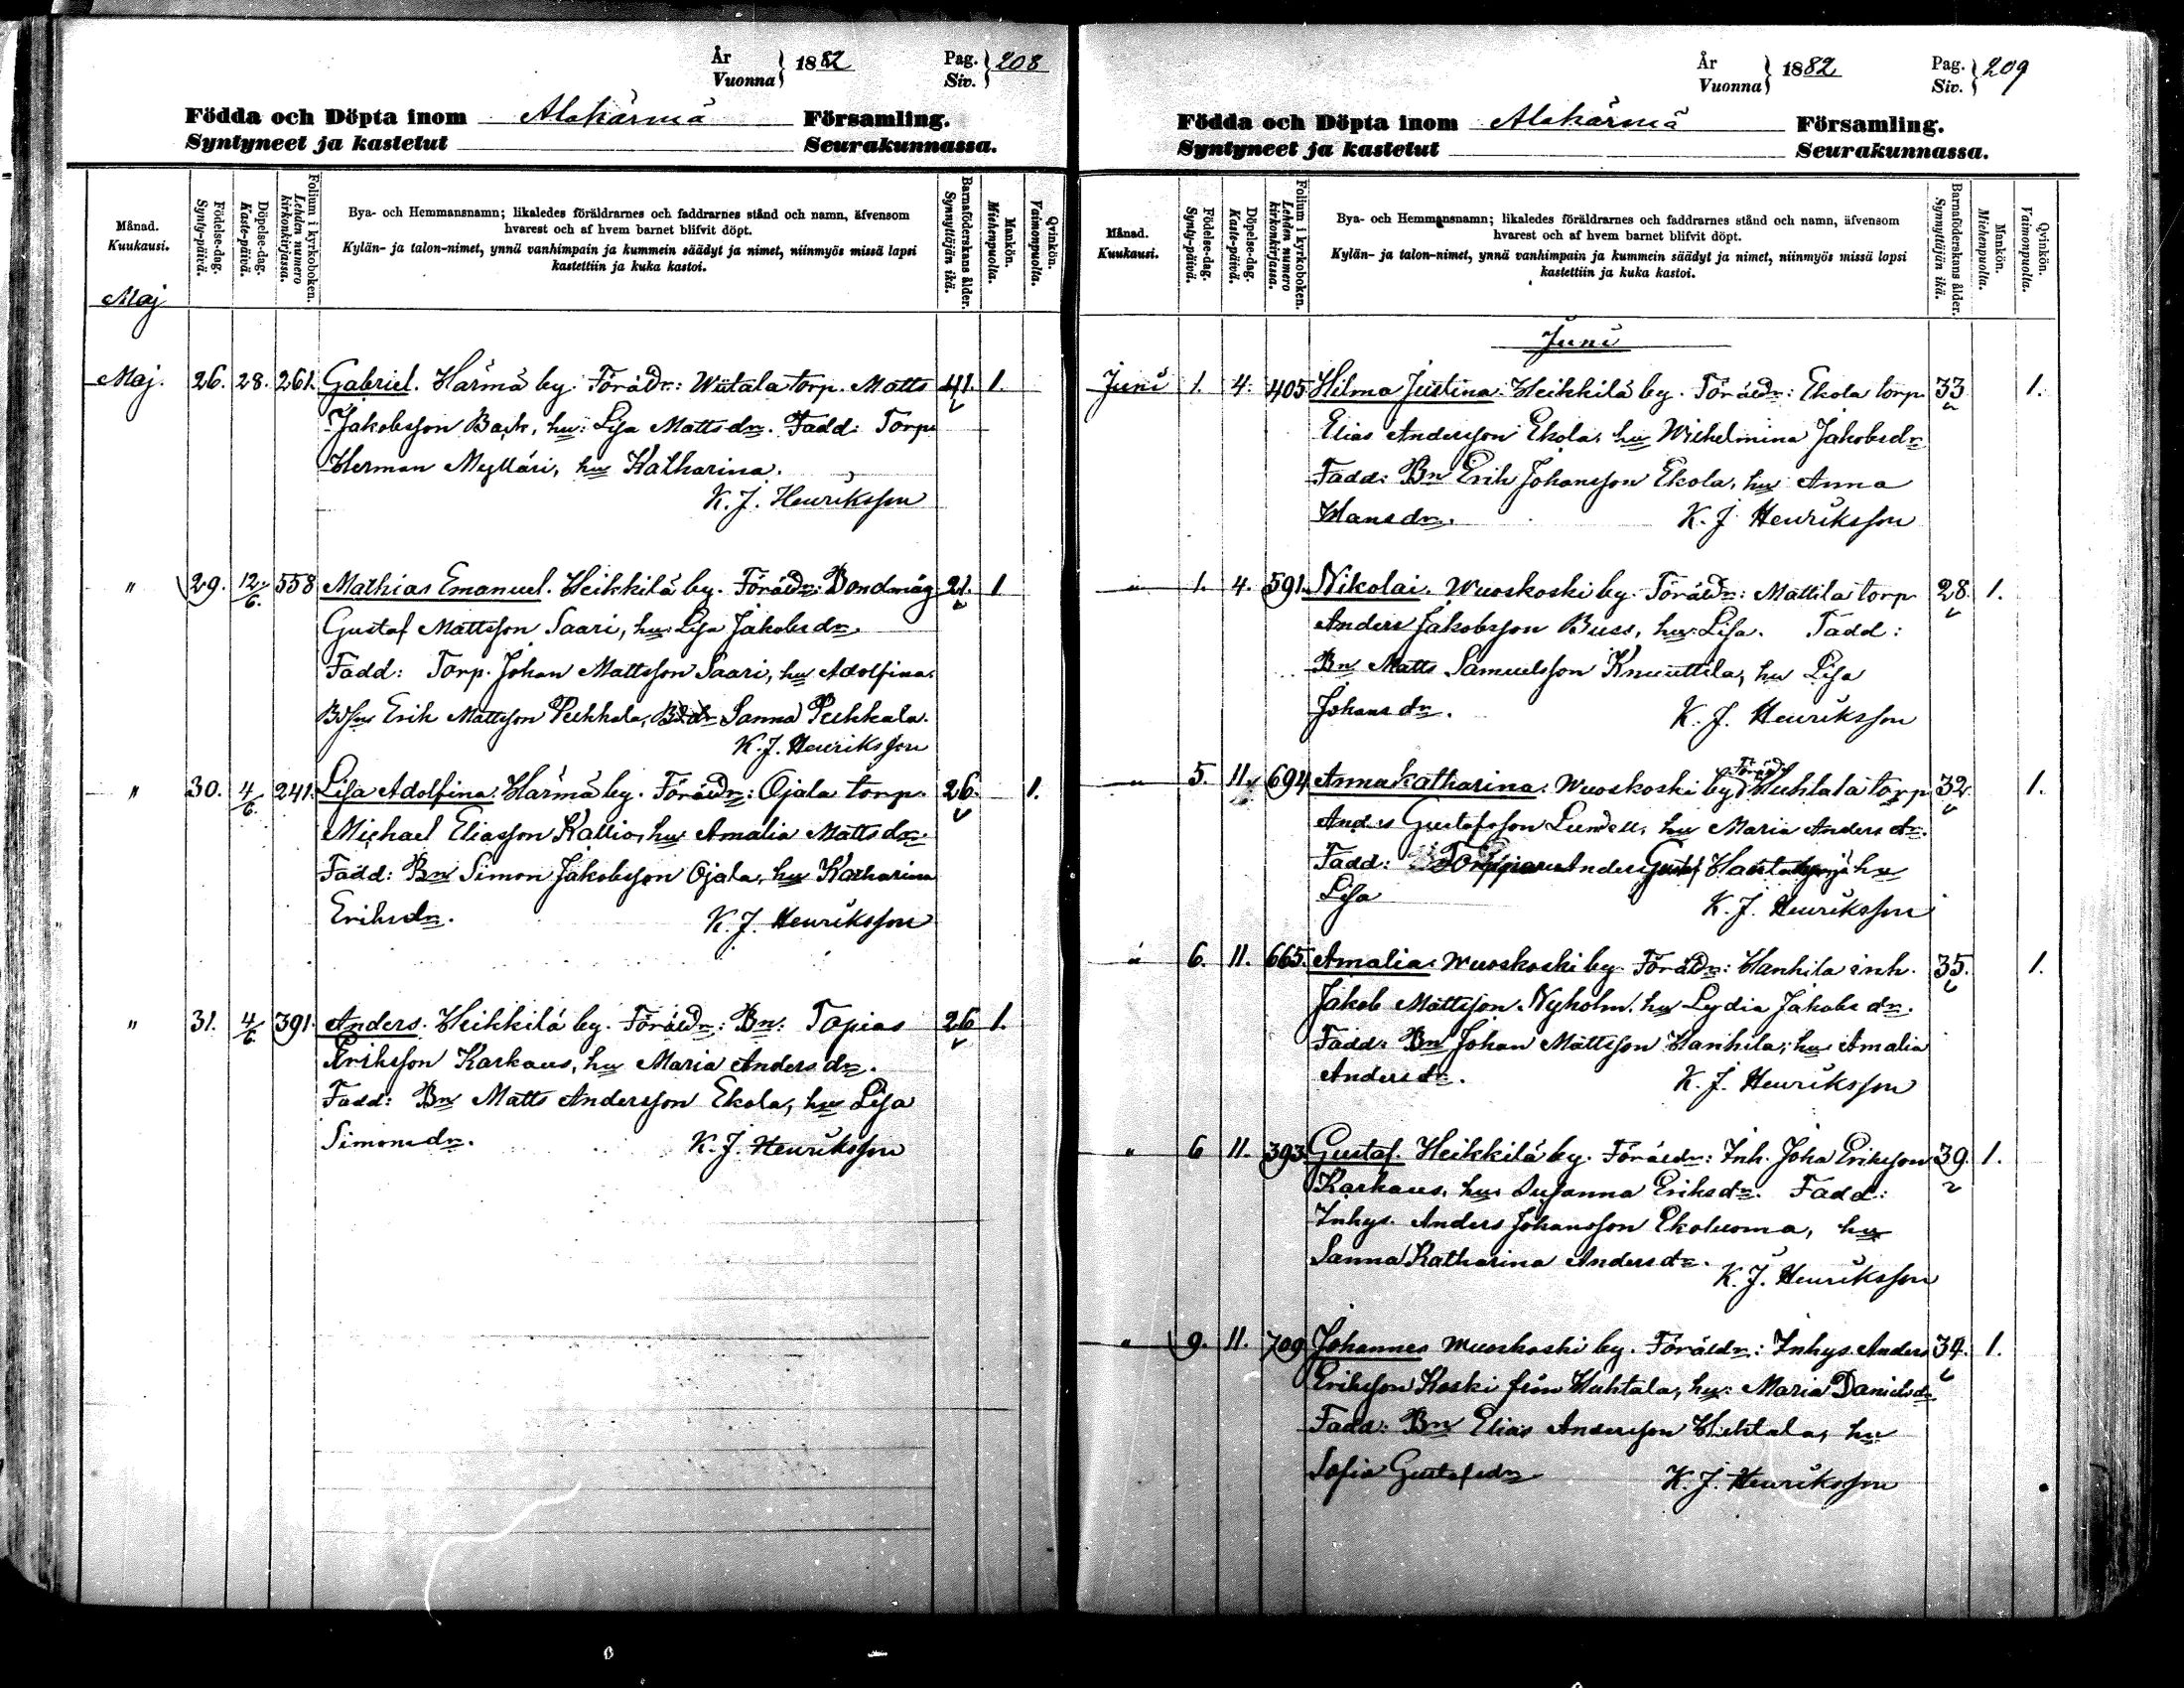 År
Vuonna } 1882
Pag.
Siv. } 208
Födda och Döpta inom Alahärmä Församling.
Syntyneet ja kastetut Seurakunnassa.
Månad.
Kuukausi.
Födelse-dag.
Synty-päivä.
Döpelse-dag.
Kaste-päivä.
Folium i kyrkoboken.
Lehden numero
kirkonkirjassa.
Bya- och Hemmansnamn; likaledes föräldrarnes och faddrarnes stånd och namn, äfvensom
hvarest och af hvem barnet blifvit döpt.
Kylän- ja talon-nimet, ynnä vanhimpain ja kummein säädyt ja nimet, niinmyös missä lapsi
kastettiin ja kuka kastoi.
Barnaföderskans ålder.
Synnyttäjän ikä.
Mankön.
Miehenpuolta.
Qvinkön.
Vaimonpuolta.
Maj
Maj. 26. 28. 261. Gabriel. Härmä by. Föräldr: Wiitala torp. Matts 41. 1.
Jakobsson Back, hu: Lisa Mattsdr. Fadd: Torp.
Herman Mylläri, hu Katharina.
K. J. Henriksson
" 29. 12/6. 558 Mathias Emanuel. Heikkilä by. Föräldr: Bondmåg 21. 1
Gustaf Mattsson Saari, hu: Lisa Jakobsdr.
Fadd: Torp. Johan Mattsson Saari, hu Adolfina.
Bdsn Erik Mattsson Pekkala, Bddr Sanna Pekkala.
K. J. Henriksson
" 30. 4/6. 241. Lisa Adolfina. Härmä by. Föräldr: Ojala torp. 26. 1.
Michael Eliasson Kallio, hu Amalia Mattsdr.
Fadd: Bn Simon Jakobsson Ojala, hu Katharina
Eriksdr. K. J. Henriksson
" 31. 4/6. 391. Anders. Heikkilä by. Föräldr: Bn: Tapias 26 1.
Eriksson Karhaus, hu Maria Andersdr.
Fadd: Bn Matts Andersson Ekola, hu Lisa
Simonsdr. K. J. Henriksson
År
Vuonna } 1882
Pag.
Siv. } 209
Födda och Döpta inom Alahärmä Församling.
Syntyneet ja kastetut Seurakunnassa.
Månad.
Kuukausi.
Födelse-dag.
Synty-päivä.
Döpelse-dag.
Kaste-päivä.
Folium i kyrkoboken.
Lehden numero
kirkonkirjassa.
Bya- och Hemmansnamn; likaledes föräldrarnes och faddrarnes stånd och namn, äfvensom
hvarest och af hvem barnet blifvit döpt.
Kylän- ja talon-nimet, ynnä vanhimpain ja kummein säädyt ja nimet, niinmyös missä lapsi
kastettiin ja kuka kastoi.
Barnaföderskans ålder.
Synnyttäjän ikä.
Mankön.
Miehenpuolta.
Qvinkön.
Vaimonpuolta.
Juni
Juni 1. 4. 405 Hilma Justina. Heikkilä by. Föräldr: Ekola torp 33 1.
Elias Andersson Ekola, hu Wilhelmina Jakobsdr
Fadd: Bn Erik Johansson Ekola, hu Anna
Hansdr. K. J. Henriksson
" 1. 4. 591. Nikolai. Wuoskoski by. Föräldr: Mattila torp 28. 1.
Anders Jakobsson Buss, hu: Lisa. Fadd:
Bn Matts Samuelsson Knuuttila, hu Lisa
Johansdr. K. J. Henriksson
" 5. 11. 694 Anna Katharina. Wuoskoski by Föräldr Huhtala torp 32. 1.
And.s Gustafsson Lundell, hu Maria Andersdr.
Fadd: Anders Gustaf hu
Lisa K. J. Henriksson
" 6. 11. 665. Amalia. Wuoskoski by. Föräldr: Hanhila inh. 35. 1.
Jakob Mattsson Nyholm, hu Lydia Jakobsdr.
Fadd: Bn Johan Mattsson Hanhila, hu Amalia
Andersdr. K. J. Henriksson
" 6 11. 393. Gustaf. Heikkilä by. Föräldr: Inh. Joha Eriksson 39. 1.
Karhaus, hu Susanna Eriksdr. Fadd:
Inhys. Anders Johansson Ekoluoma, hu
Sanna Katharina Andersdr.
K. J. Henriksson
" 9. 11. 709 Johannes Wuoskoski by. Föräldr: Inhys. Anders 34. 1.
Eriksson Koski från Huhtala, hu: Maria Danielsdr
Fadd: Bn Elias Andersson Huhtala, hu
Sofia Gustafsdr K. J. Henriksson